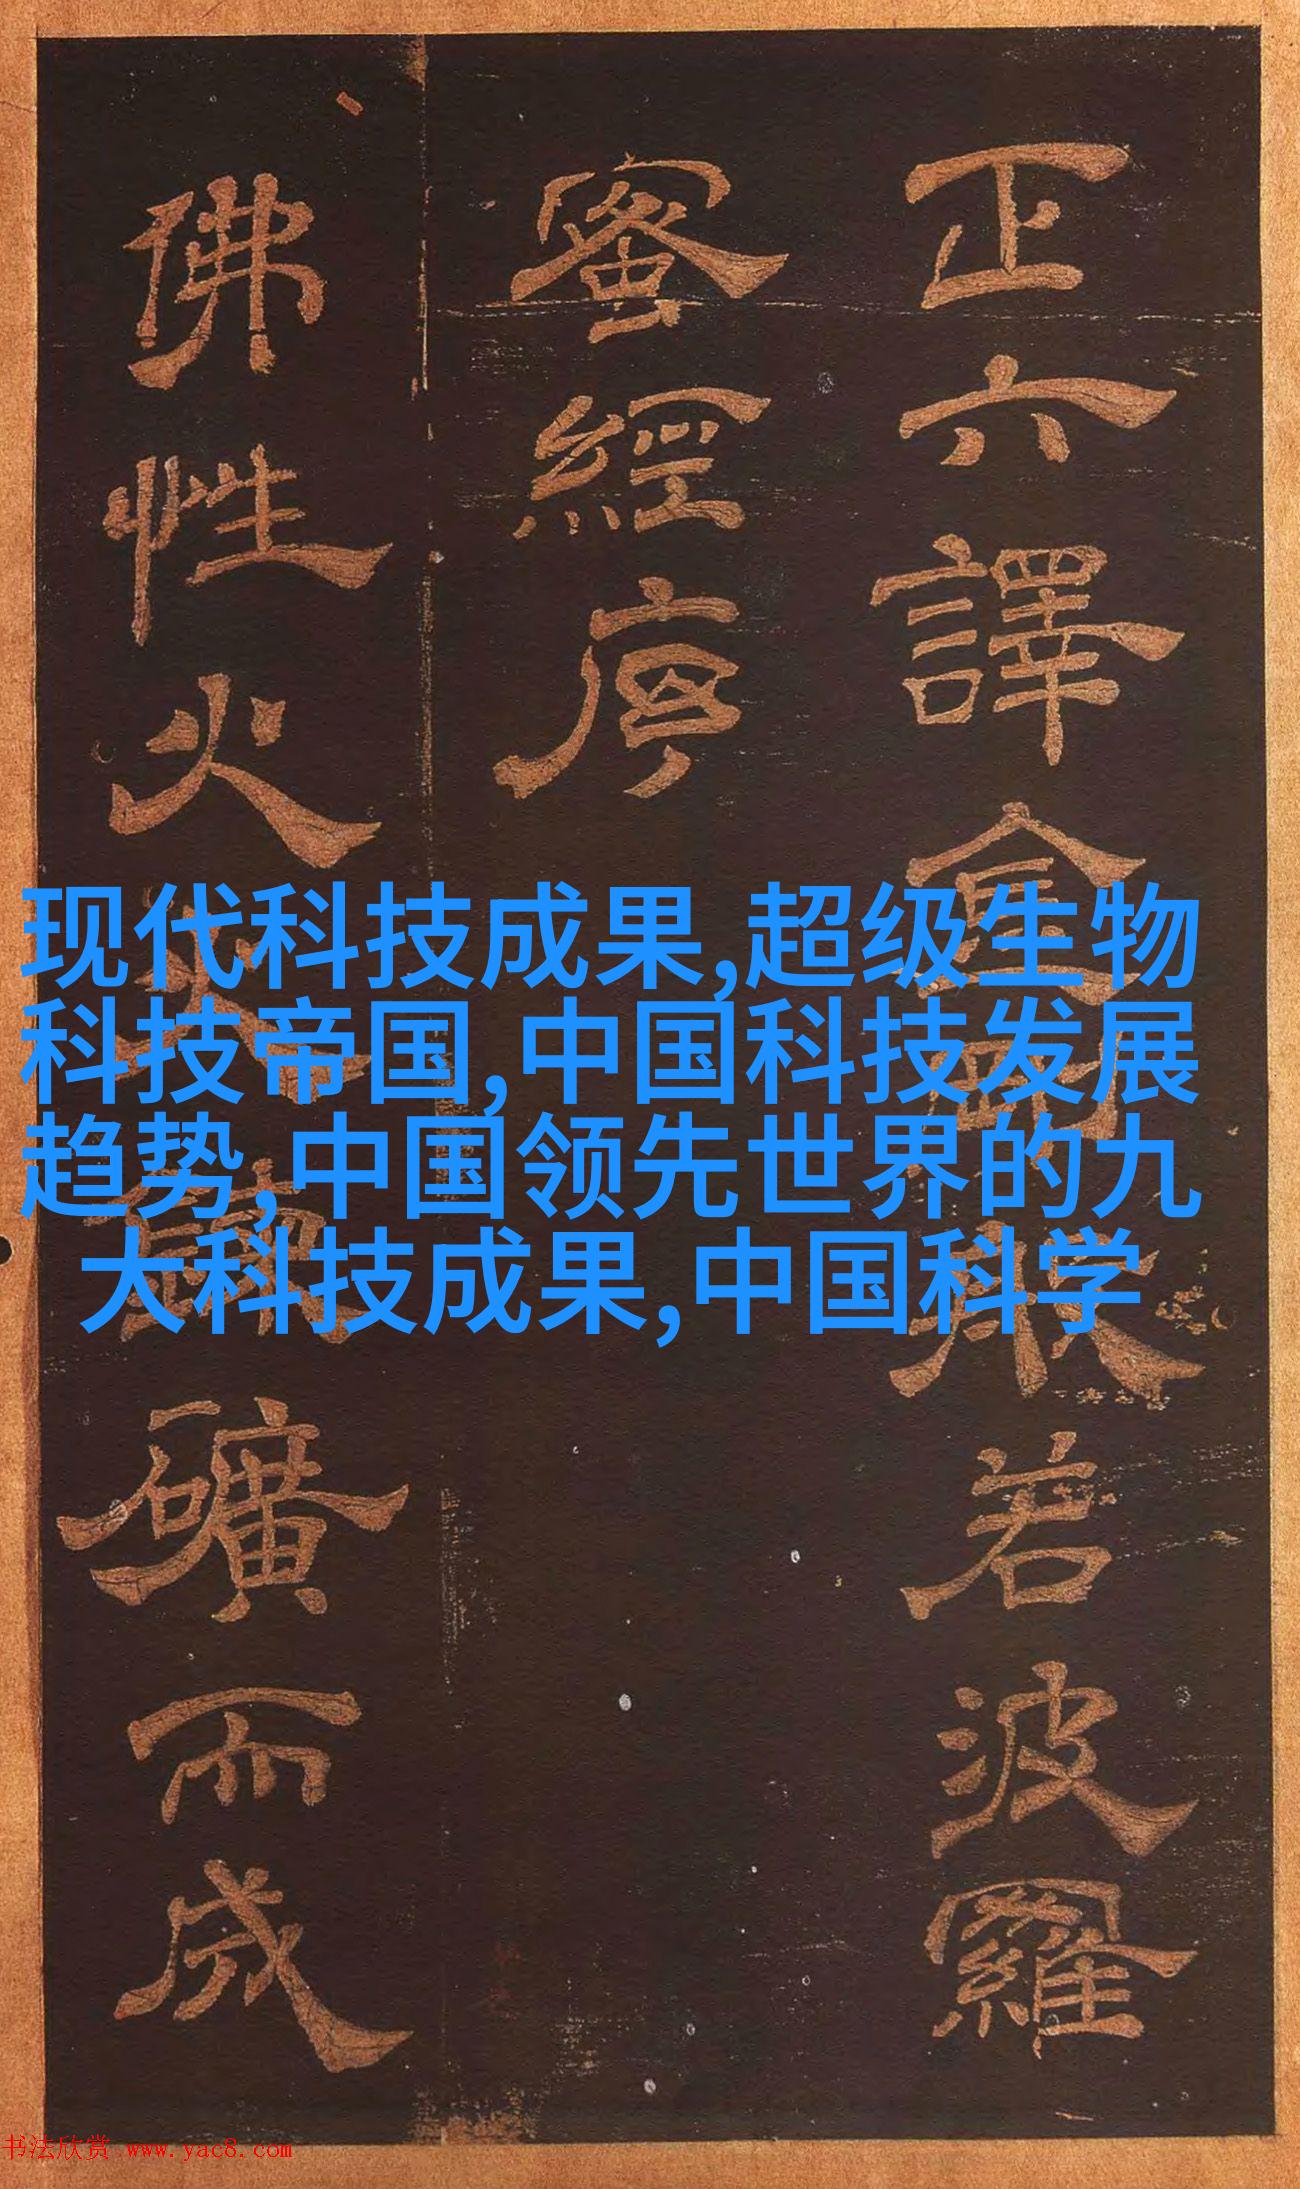 正六譯金剛般若波羅
蜜經序
佛性火礦而成
现代科技成果,超级生物
科技帝国,中国科技发展
趋势,中国领先世界的九
大科技成果,中国科学
书法欣赏 www.yac8.com